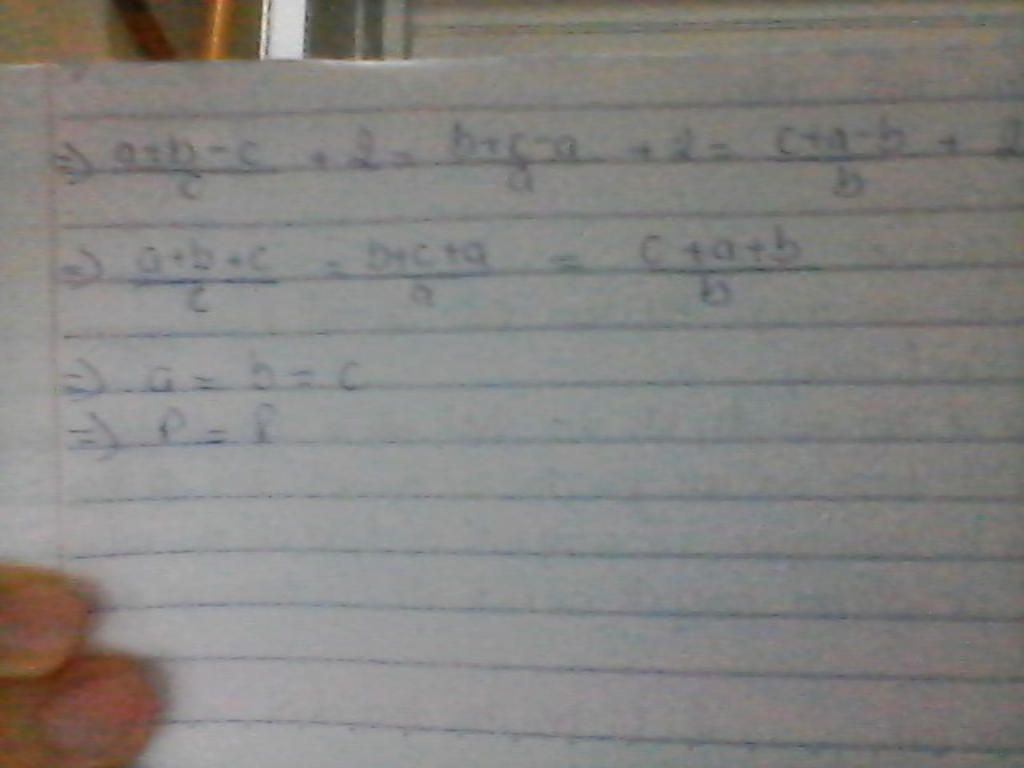 => (a+b-c)/c + 2 = (b+c-a)/a + 2 = (c+a-b)/b + 2
=> (a+b+c)/c = (b+c+a)/a = (c+a+b)/b
=> a = b = c
=> P = 8